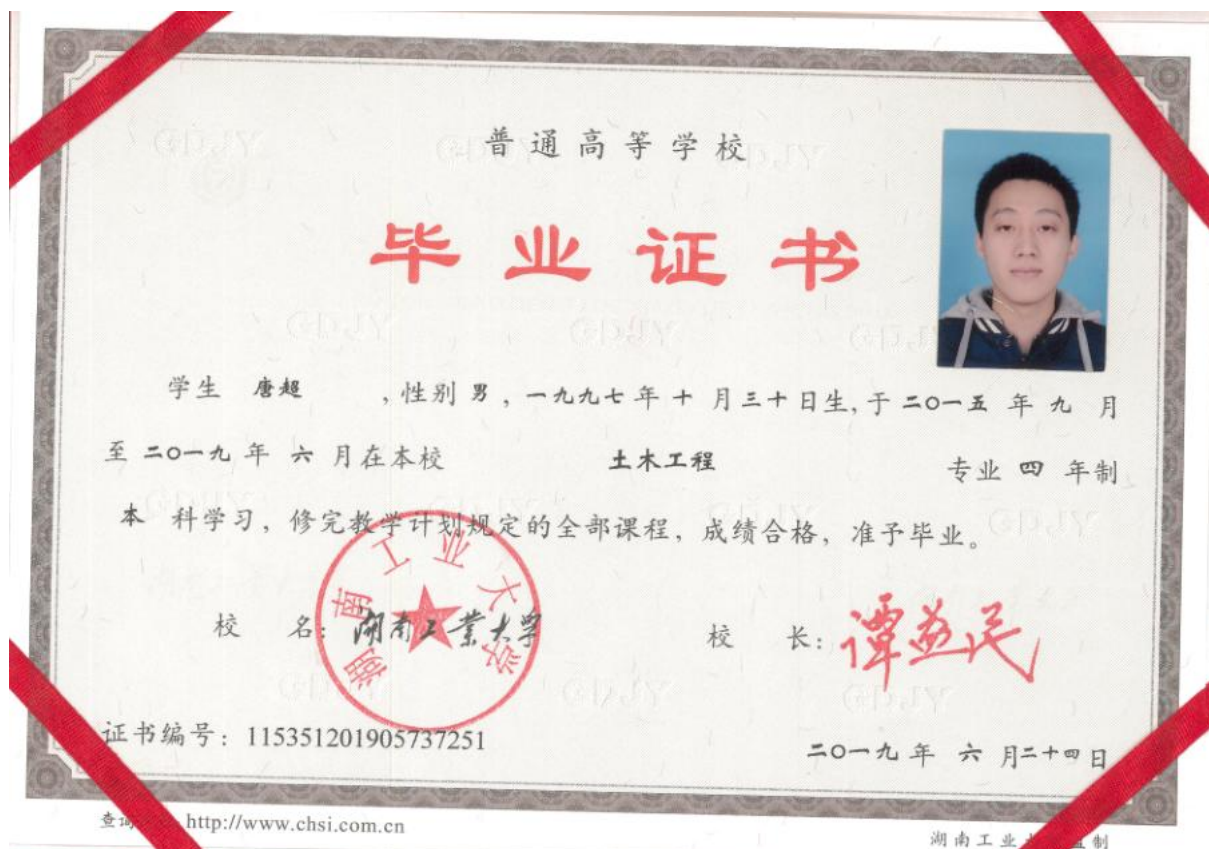 普通高等学校
毕业证书
学生 唐超 ，性别 男 ，一九九七 年 十 月 三十 日生，于 二〇一五 年 九 月
至 二〇一九 年 六 月在本校 土木工程 专业 四 年制
本 科学习，修完教学计划规定的全部课程，成绩合格，准予毕业。
湖南工业大学
校 名：湖南工業大學 校 长：谭益民
证书编号：115351201905737251 二〇一九 年 六 月二十四日
http://www.chsi.com.cn
湖南工业